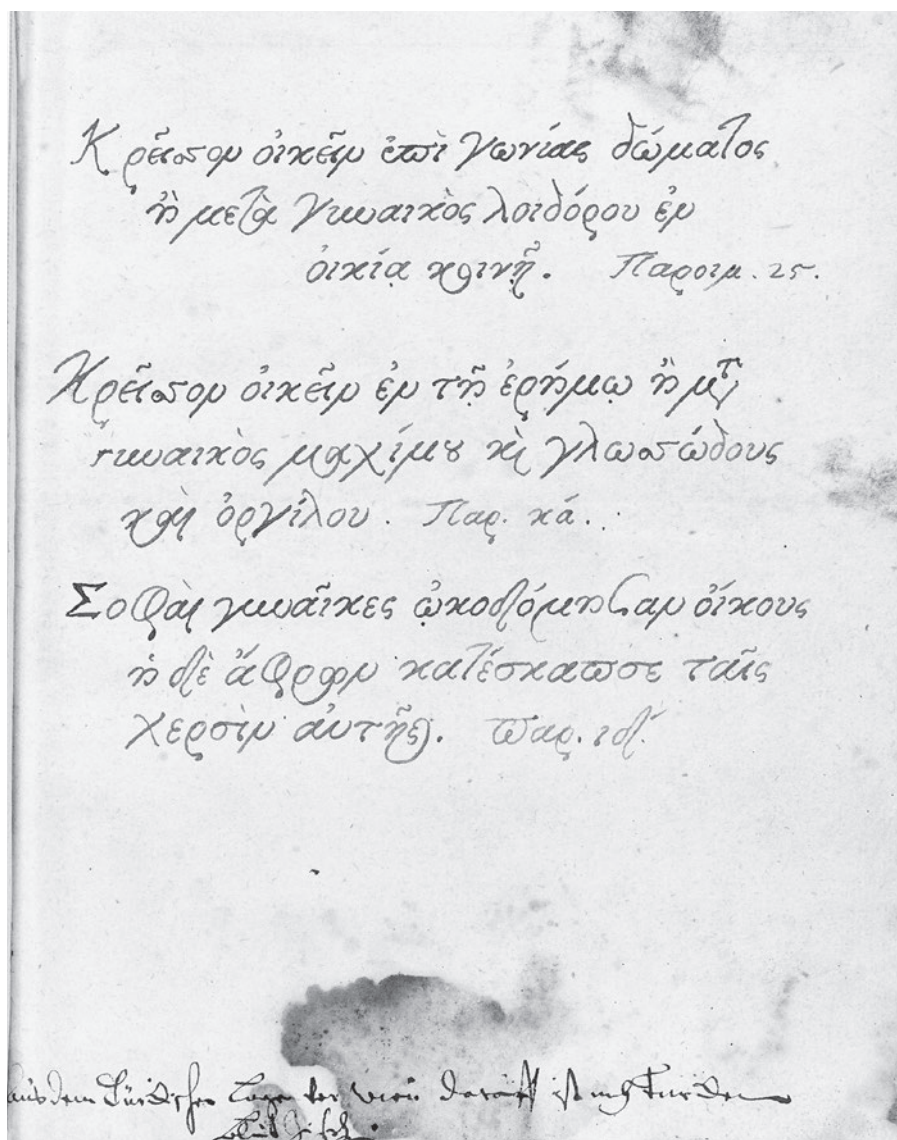 Κρεῖσσον οἰκεῖν ἐπὶ γωνίας δώματος
ἢ μετὰ γυναικὸς λοιδόρου ἐν
οἰκίᾳ κοινῇ. Παροιμ. 25.
Κρεῖσσον οἰκεῖν ἐν τῇ ἐρήμῳ ἢ μτ
γυναικὸς μαχίμου κὶ γλωσσώδους
καὶ ὀργίλου. Παρ. κά.
Σοφαὶ γυναῖκες ᾠκοδόμησαν οἴκους
ἡ δὲ ἄφρων κατέσκαπσε ταῖς
χερσὶν αὐτῆς. παρ. ιδ.
aus dem Türckischen Lager vor wien